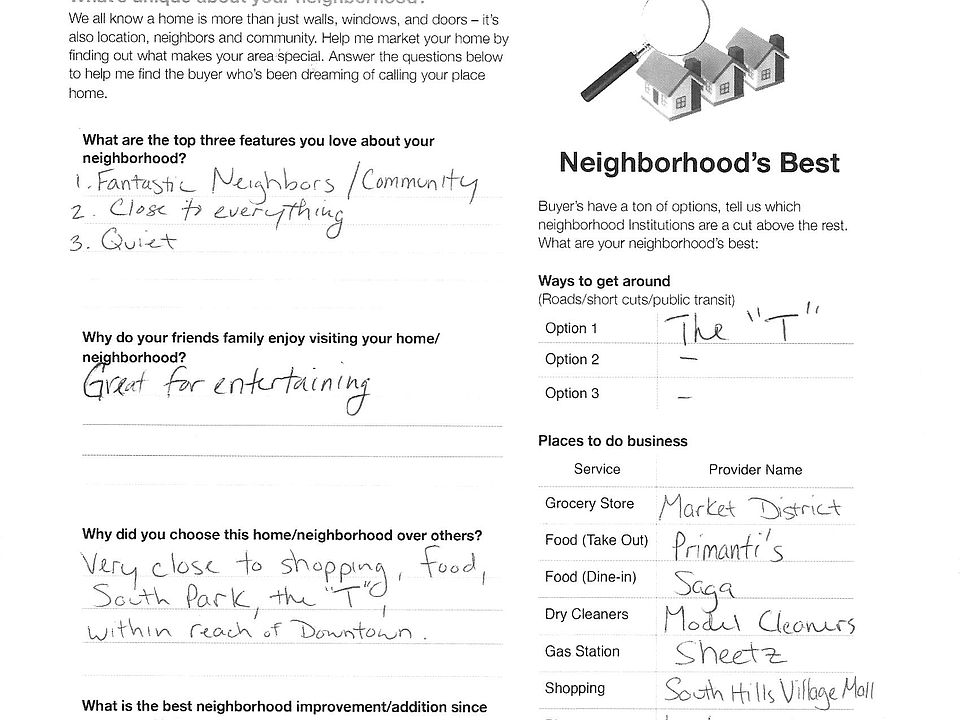 What's unique about your neighborhood?
We all know a home is more than just walls, windows, and doors – it's
also location, neighbors and community. Help me market your home by
finding out what makes your area special. Answer the questions below
to help me find the buyer who's been dreaming of calling your place
home.
What are the top three features you love about your
neighborhood?
1. Fantastic Neighbors / Community
2. Close to everything
3. Quiet
Why do your friends family enjoy visiting your home/
neighborhood?
Great for entertaining
Why did you choose this home/neighborhood over others?
Very close to shopping, food,
South Park, the "T",
within reach of Downtown.
What is the best neighborhood improvement/addition since
Neighborhood's Best
Buyer's have a ton of options, tell us which
neighborhood Institutions are a cut above the rest.
What are your neighborhood's best:
Ways to get around
(Roads/short cuts/public transit)
Option 1 The "T"
Option 2 –
Option 3 –
Places to do business
Service Provider Name
Grocery Store Market District
Food (Take Out) Primanti's
Food (Dine-in) Saga
Dry Cleaners Model Cleaners
Gas Station Sheetz
Shopping South Hills Village Mall